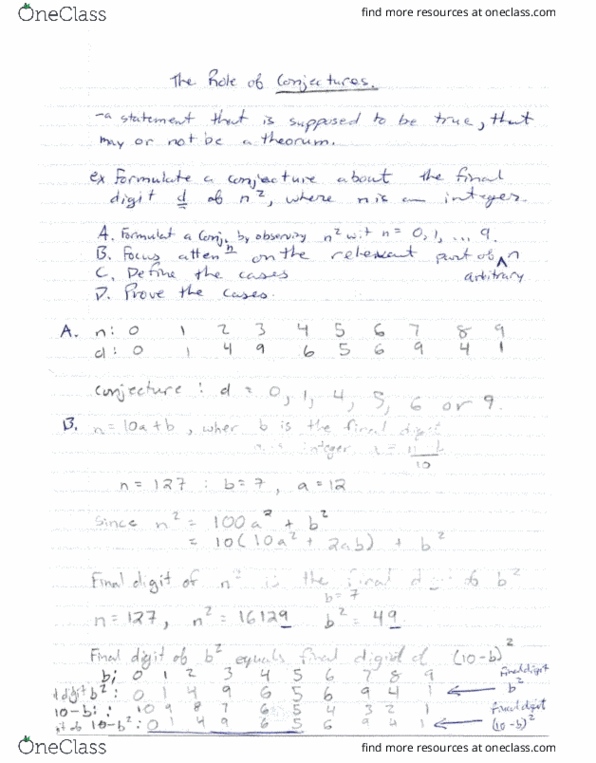 OneClass
find more resources at oneclass.com
The Role of Conjectures.
- a statement that is supposed to be true, that
may or not be a theorum.
ex Formulate a conjecture about the final
digit d of n², where n is an integer.
A. Formulat a Conj. by observing n² wit n = 0, 1, ... 9.
B. Focus attenⁿ on the relevant part of ^ n
arbitrary
C. Define the cases
D. Prove the cases.
A. n: 0 1 2 3 4 5 6 7 8 9
d: 0 1 4 9 6 5 6 9 4 1
Conjecture: d = 0, 1, 4, 5, 6 or 9.
B. n = 10a + b, wher b is the final digit
integer,
10
n = 127 : b = 7, a = 12
Since n² = 100a² + b²
= 10(10a² + 2ab) + b²
Final digit of n² is the final digit of b²
b = 7
n = 127, n² = 16129 b² = 49
Final digit of b² equals final digit of (10-b)²
b: 0 1 2 3 4 5 6 7 8 9 Final digit
digit b²: 0 1 4 9 6 5 6 9 4 1 ← b²
10-b: 10 9 8 7 6 5 4 3 2 1 Final digit
10-b²: 0 1 4 9 6 5 6 9 4 1 ← (10-b)²
OneClass
find more resources at oneclass.com